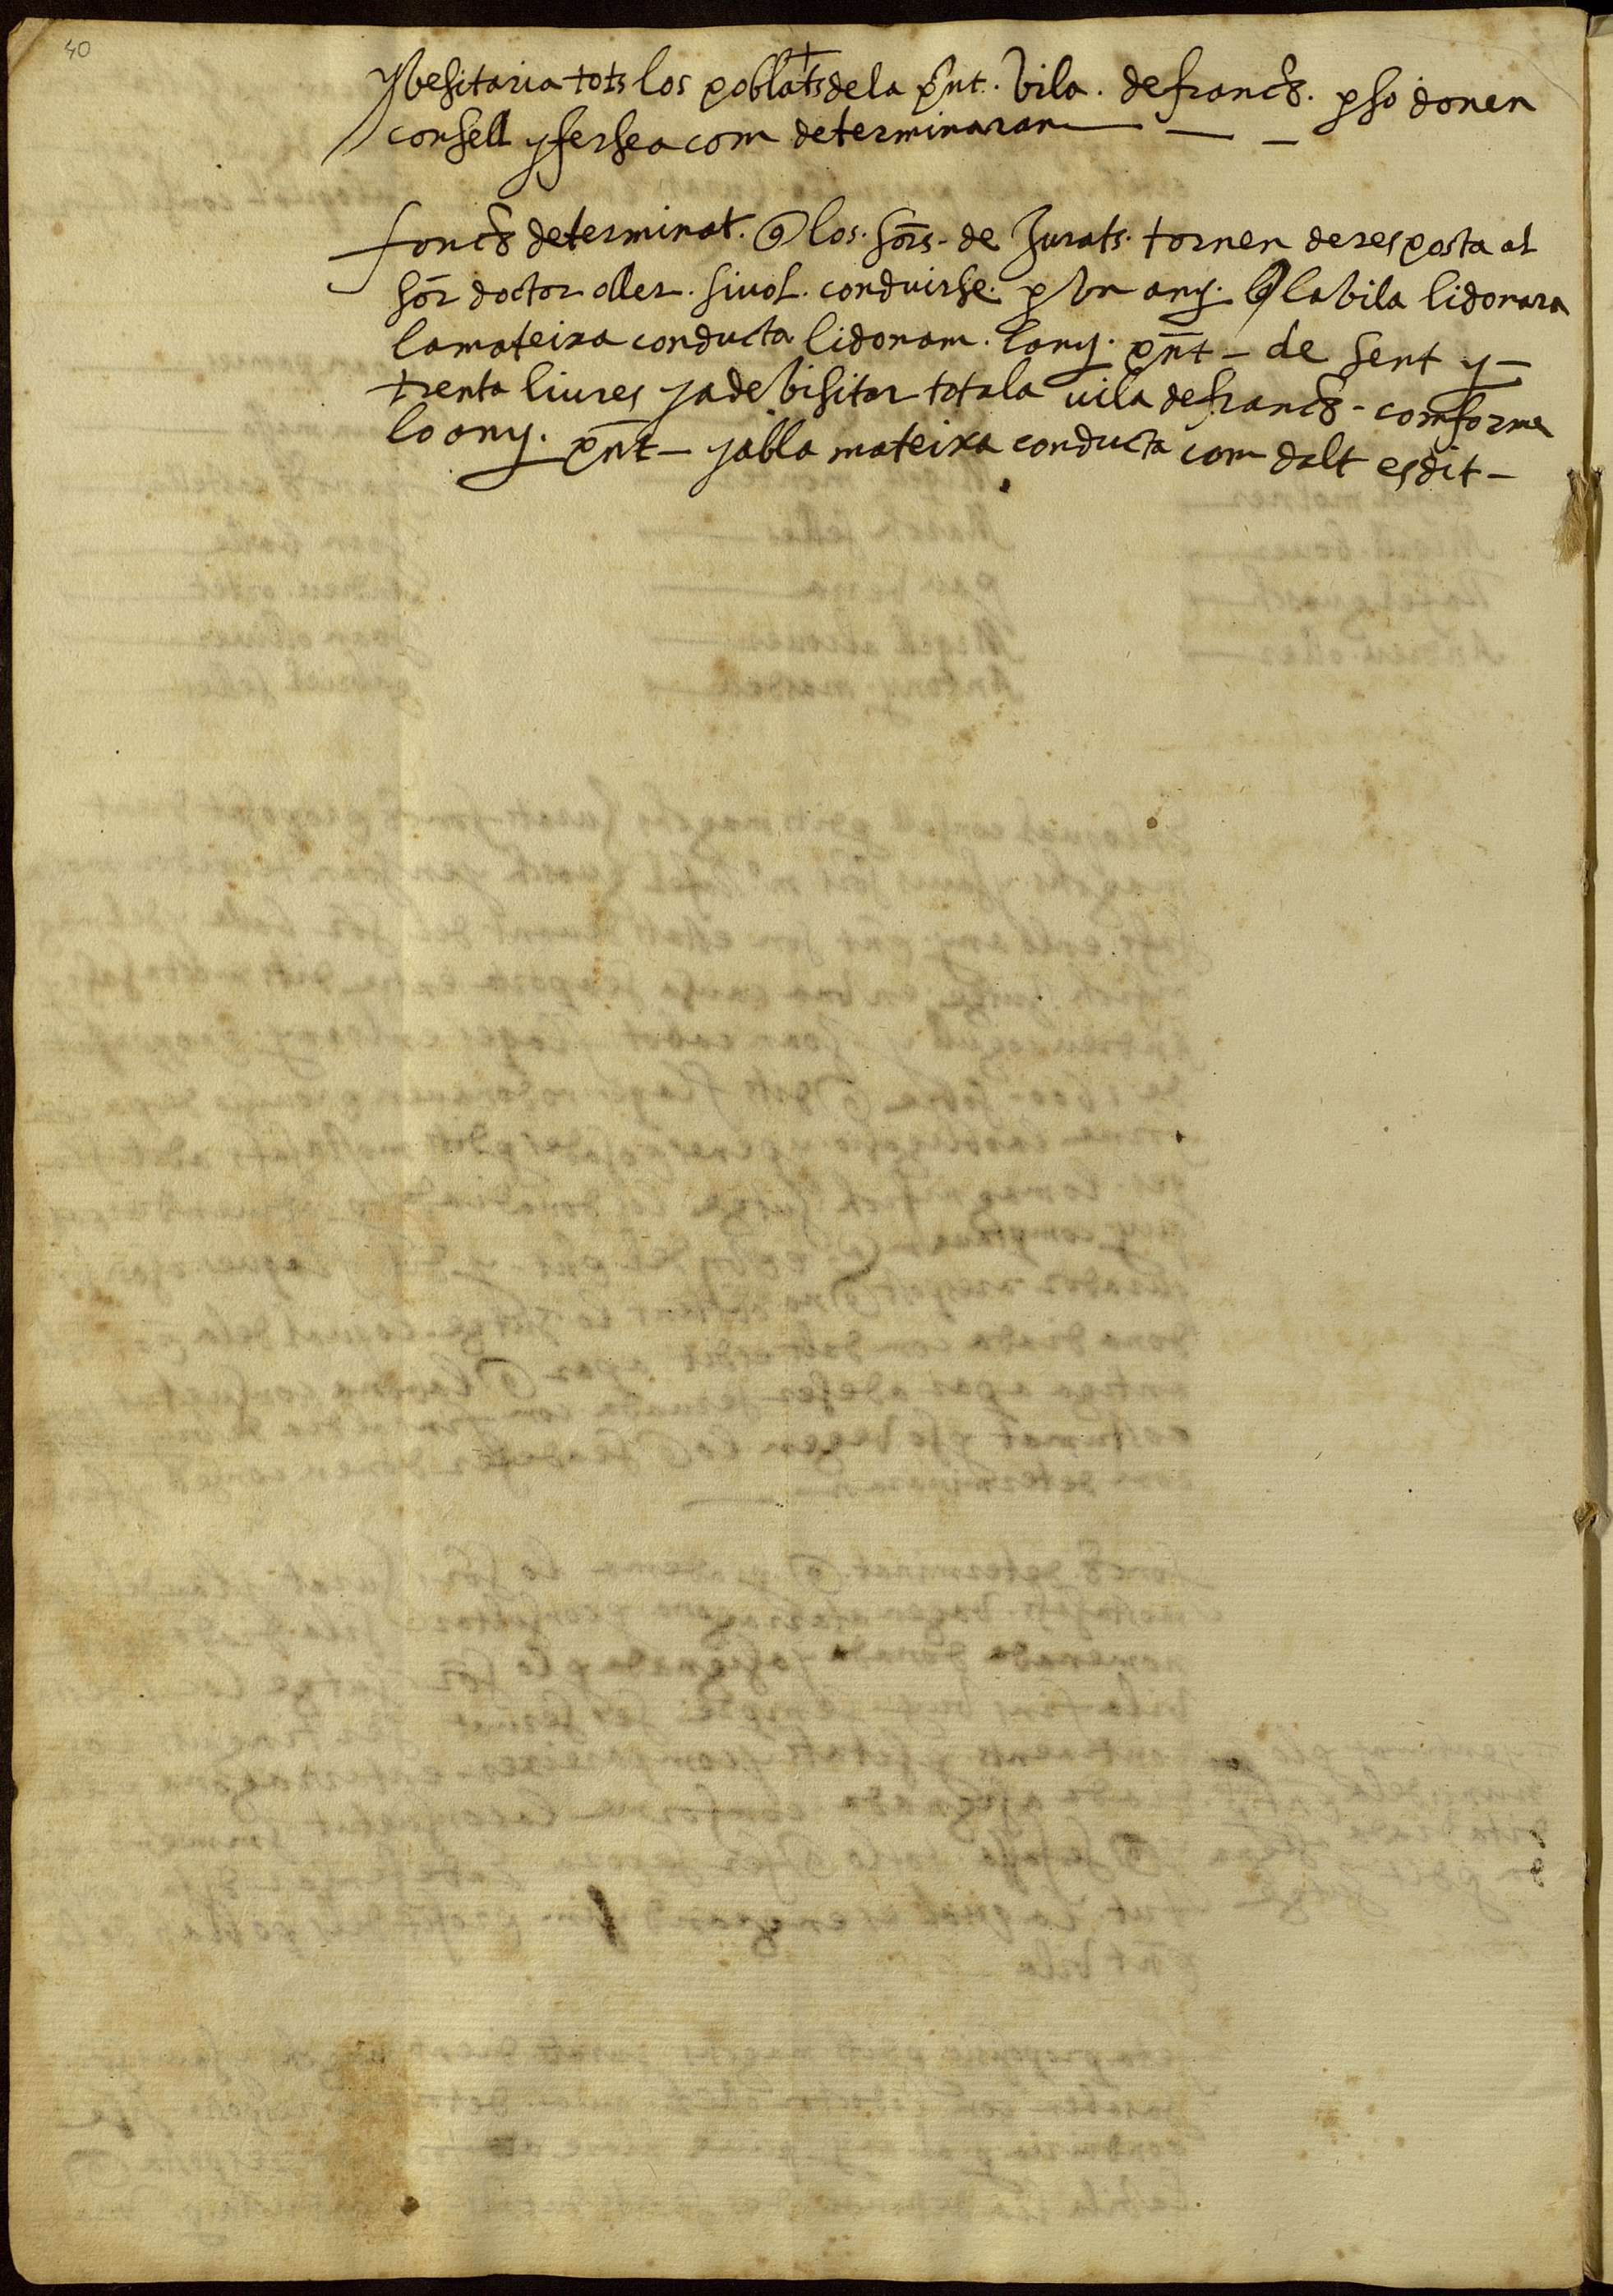 40
y besitaria tots los poblats de la pñt. bila. de franch. p so donen
consell y fersea com determinaran
fonch determinat. q los. sors. de Jurats. tornen de resposta al
sor doctor oller. si vol. conduirse. p bn any. q la bila li donara
la mateixa conducta li donam. lany. pñt - de sent y -
trenta liures y a de bisitar tota la uila de franch - comforme
lo any. pñt - y ab la mateixa conducta com dalt es dit -